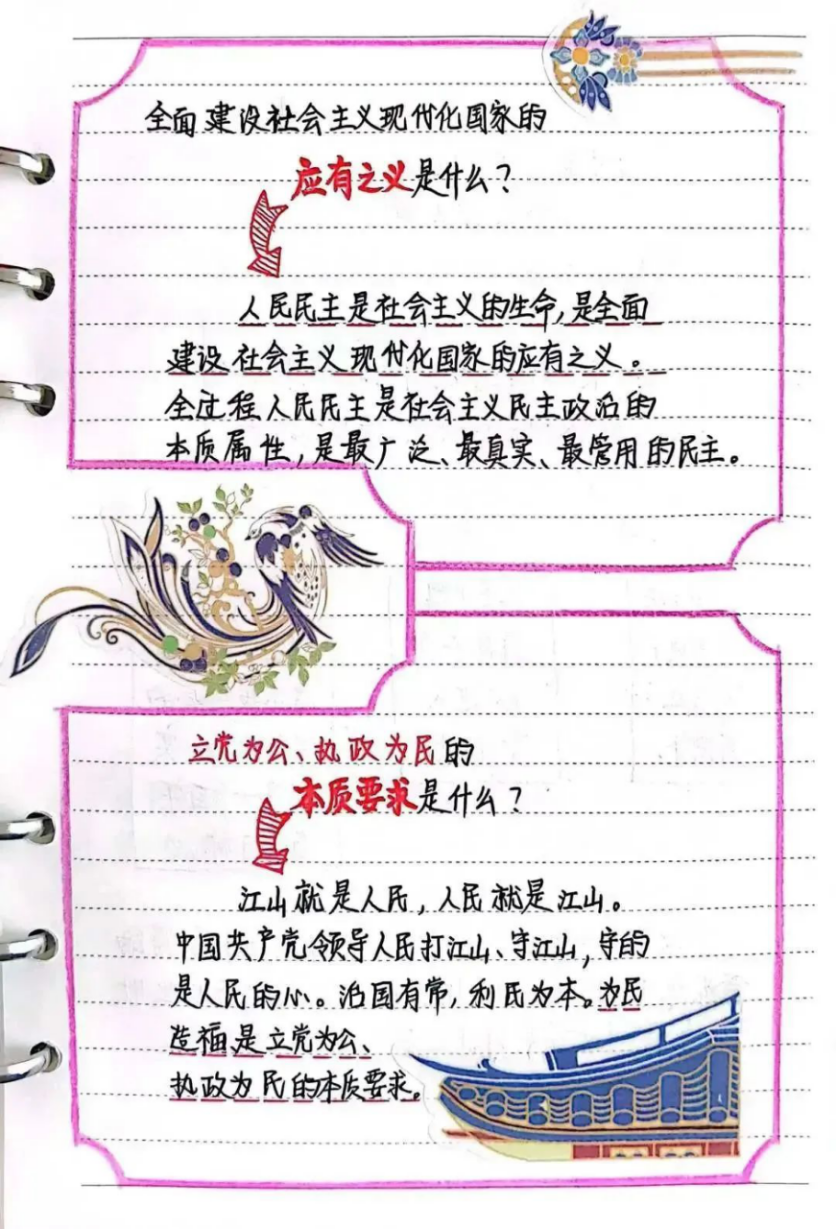 全面建设社会主义现代化国家的
应有之义是什么？
人民民主是社会主义的生命,是全面
建设社会主义现代化国家的应有之义。
全过程人民民主是社会主义民主政治的
本质属性，是最广泛、最真实、最管用的民主。
立党为公、执政为民的
本质要求是什么？
江山就是人民，人民就是江山。
中国共产党领导人民打江山、守江山,守的
是人民的心。治国有常,利民为本。为民
造福是立党为公、
执政为民的本质要求。